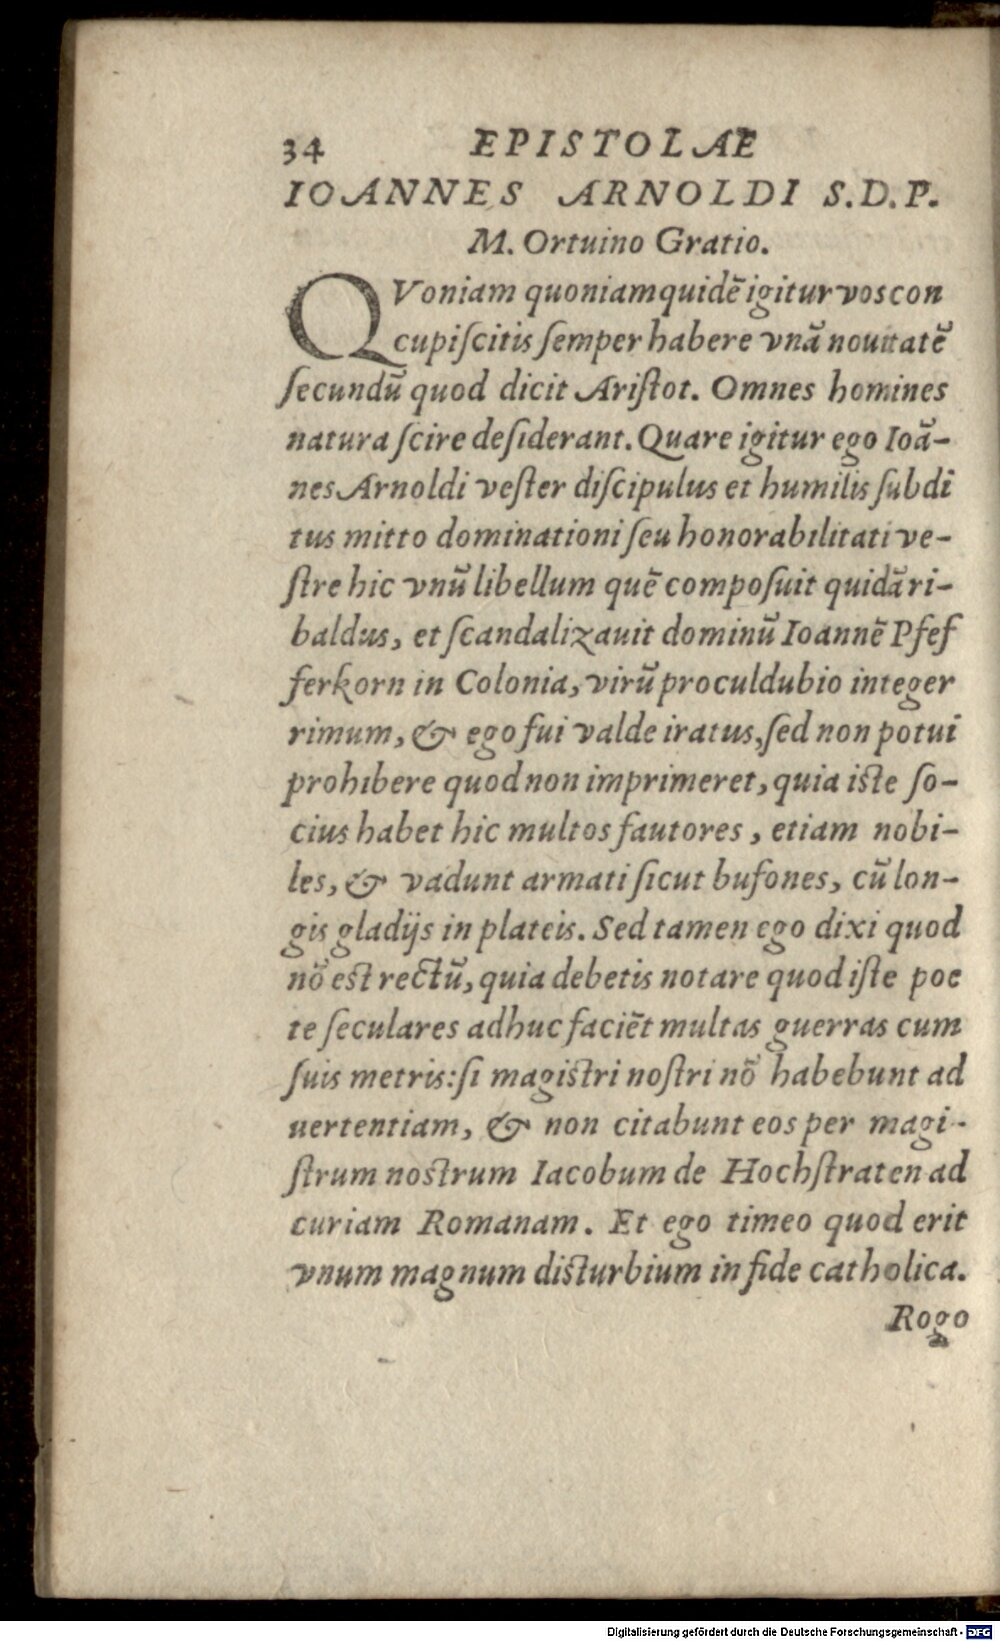 34 EPISTOLAE
IOANNES ARNOLDI S.D.P.
M. Ortuino Gratio.
QVoniam quoniamquidē igitur vos con
cupiſcitis ſemper habere vnā nouitatē
ſecundū quod dicit Ariſtot. Omnes homines
natura ſcire deſiderant. Quare igitur ego Ioā-
nes Arnoldi veſter diſcipulus et humilis ſubdi
tus mitto dominationi ſeu honorabilitati ve-
ſtre hic vnū libellum quē compoſuit quidā ri-
baldus, et ſcandalizauit dominū Ioannē Pfef
ferkorn in Colonia, virū proculdubio integer
rimum, & ego fui valde iratus, ſed non potui
prohibere quod non imprimeret, quia iſte ſo-
cius habet hic multos fautores, etiam nobi-
les, & vadunt armati ſicut bufones, cū lon-
gis gladijs in plateis. Sed tamen ego dixi quod
nō eſt rectū, quia debetis notare quod iſte poe
te ſeculares adhuc faciēt multas guerras cum
ſuis metris: ſi magiſtri noſtri nō habebunt ad
uertentiam, & non citabunt eos per magi-
ſtrum noſtrum Iacobum de Hochſtraten ad
curiam Romanam. Et ego timeo quod erit
vnum magnum diſturbium in fide catholica.
Rogo
Digitalisierung gefördert durch die Deutsche Forschungsgemeinschaft - DFG